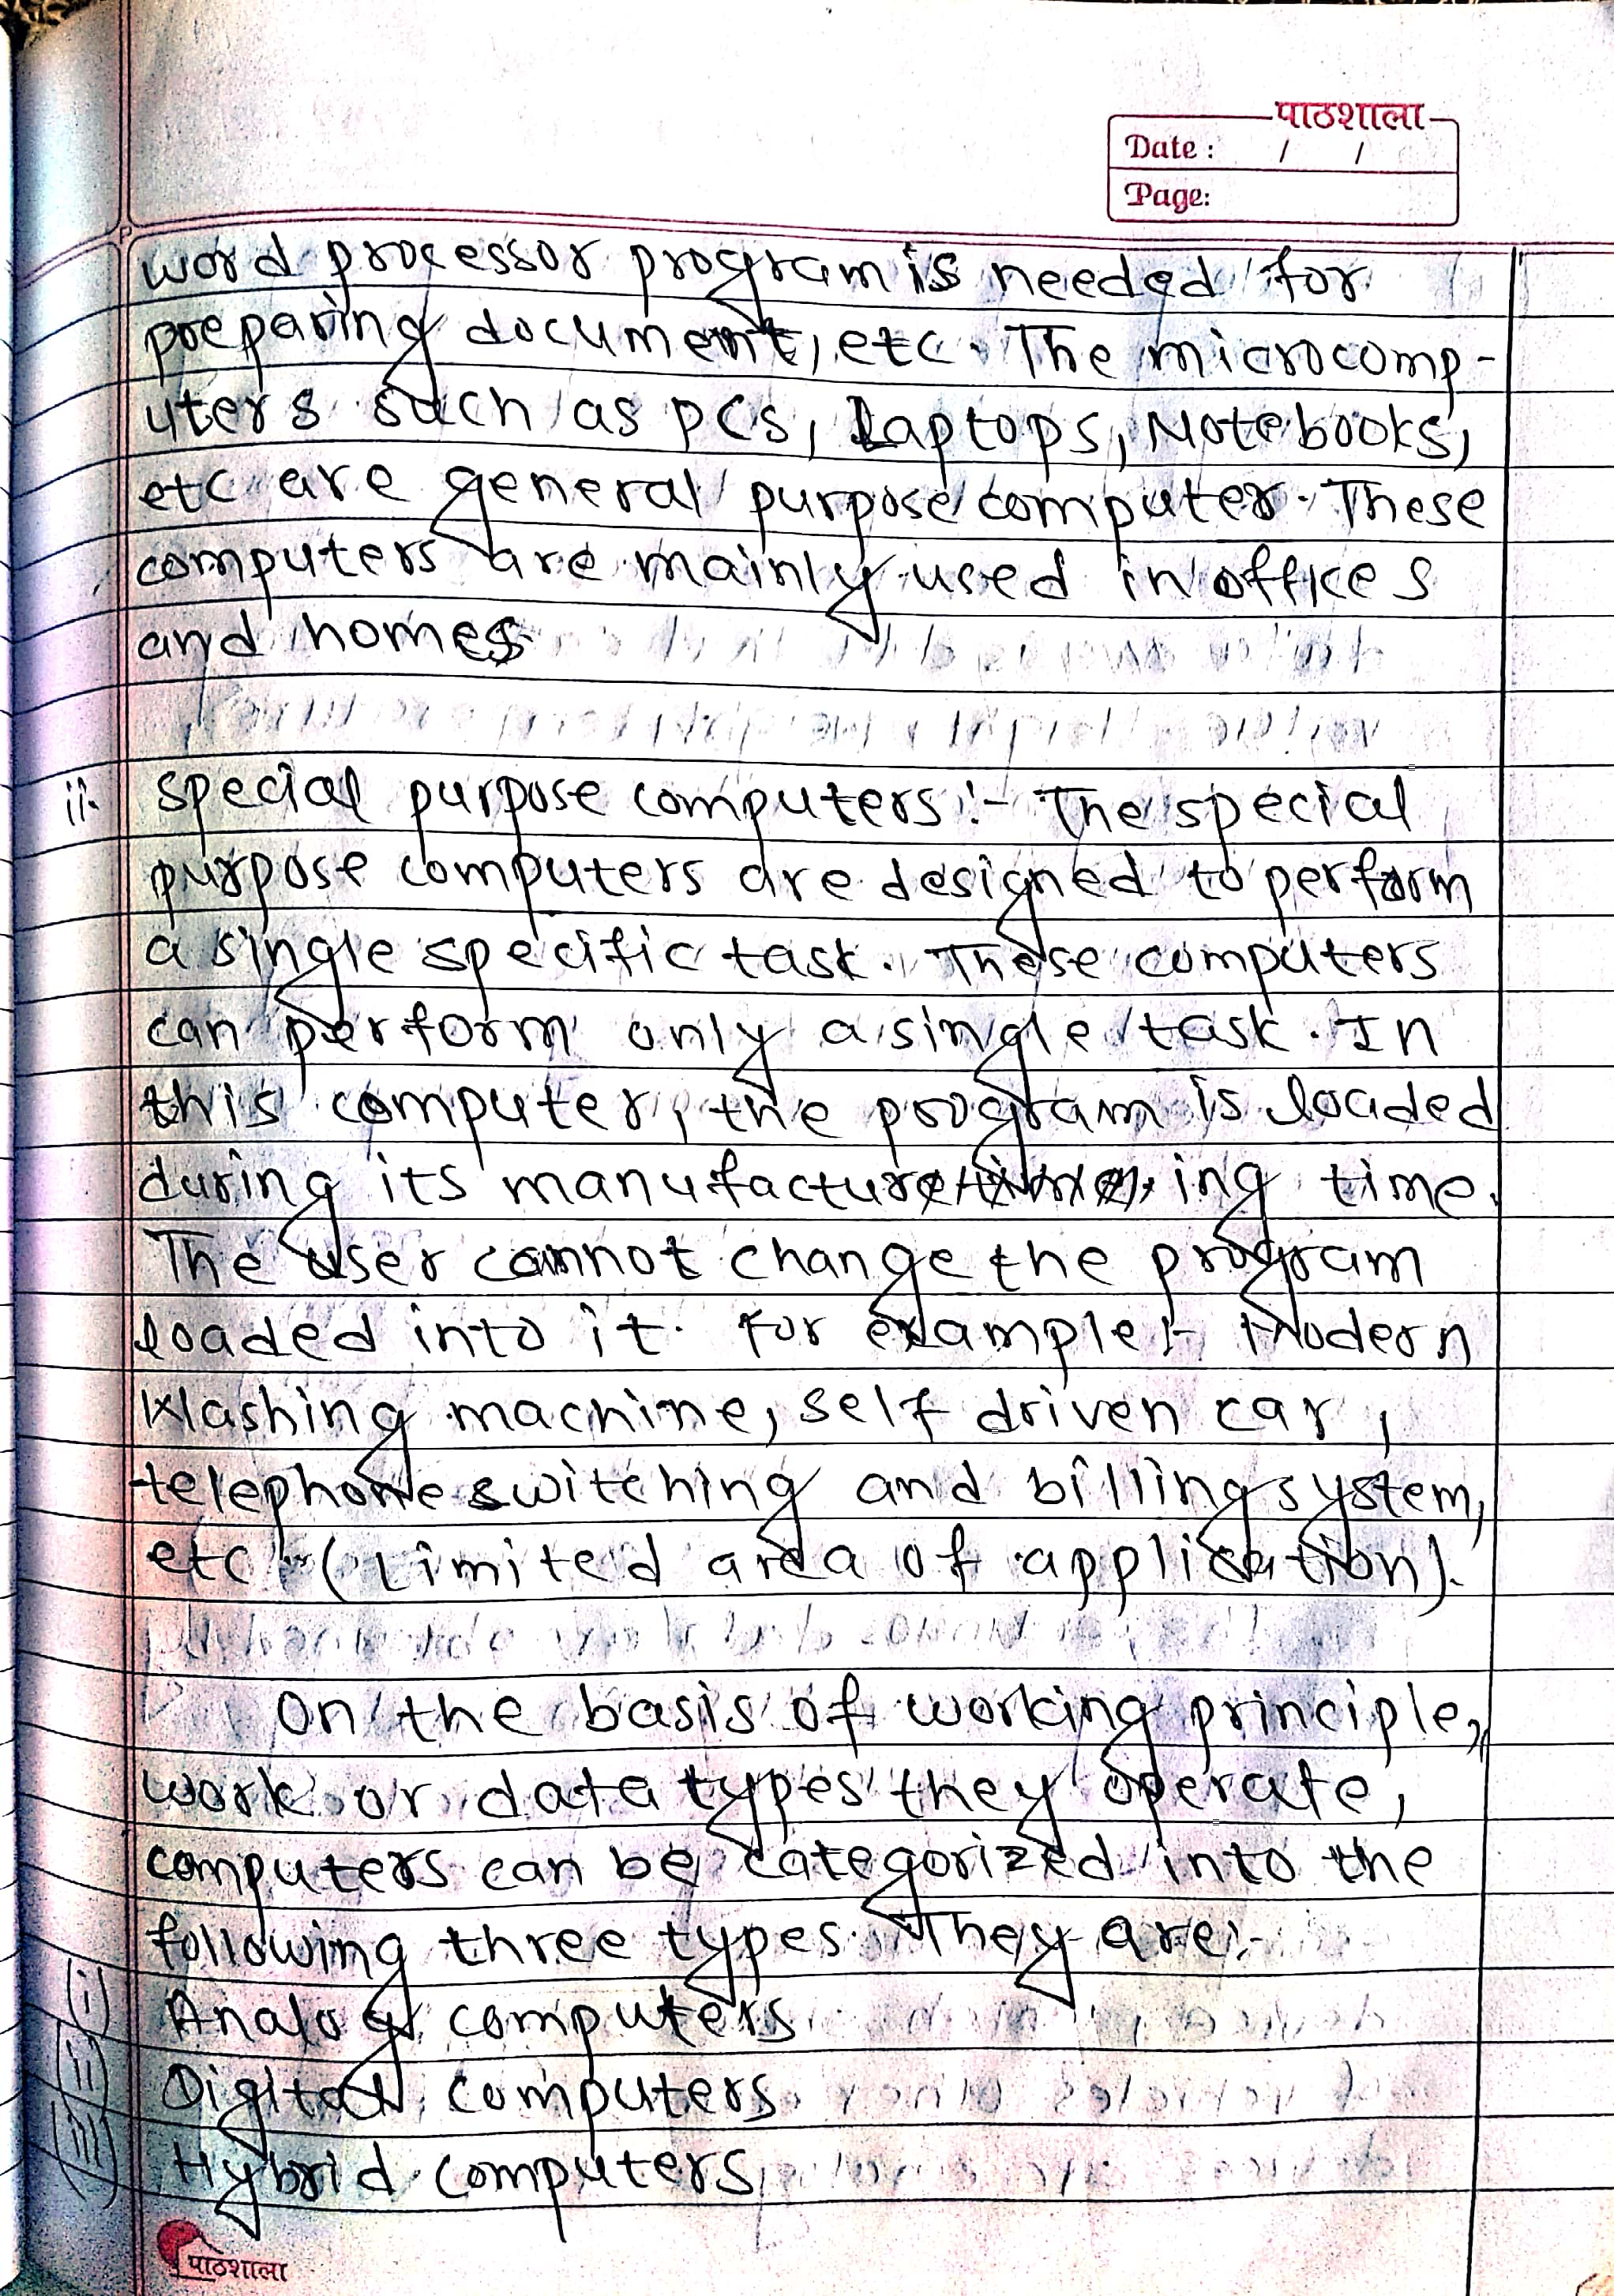 पाठशाला
Date : / /
Page:
word processor program is needed for
preparing document, etc. The microcomp-
uters such as PCs, Laptops, Notebooks,
etc are general purpose computer. These
computers are mainly used in offices
and homes
ii. special purpose computers:- The special
purpose computers are designed to perform
a single specific task. These computers
can perform only a single task. In
this computer, the program is loaded
during its manufacture ing time.
The user cannot change the program
loaded into it. For example:- Modern
Washing machine, self driven car,
telephone switching and billing system,
etc. (Limited area of application).
On the basis of working principle,
work or data types they operate,
computers can be categorized into the
following three types. They are:-
(i) Analog computers
(ii) Digital computers
(iii) Hybrid computers
पाठशाला